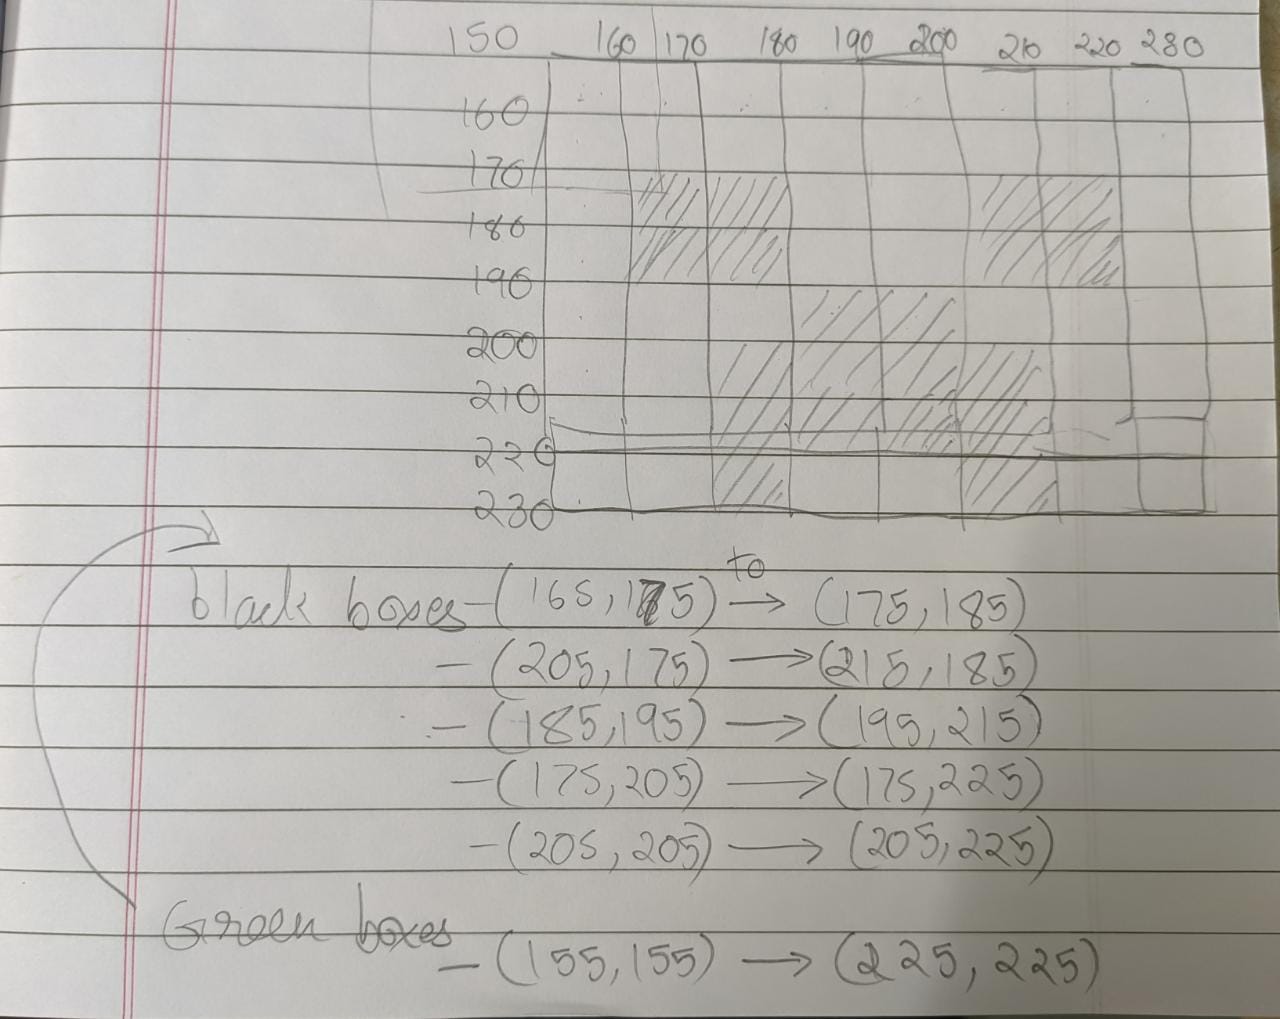 150 160 170 180 190 200 210 220 280
160
170
180
190
200
210
220
230
to
black boxes-(165,175) → (175,185)
- (205,175) → (215,185)
- (185,195) → (195,215)
- (175,205) → (175,225)
- (205,205) → (205,225)
Green boxes
- (155,155) → (225,225)